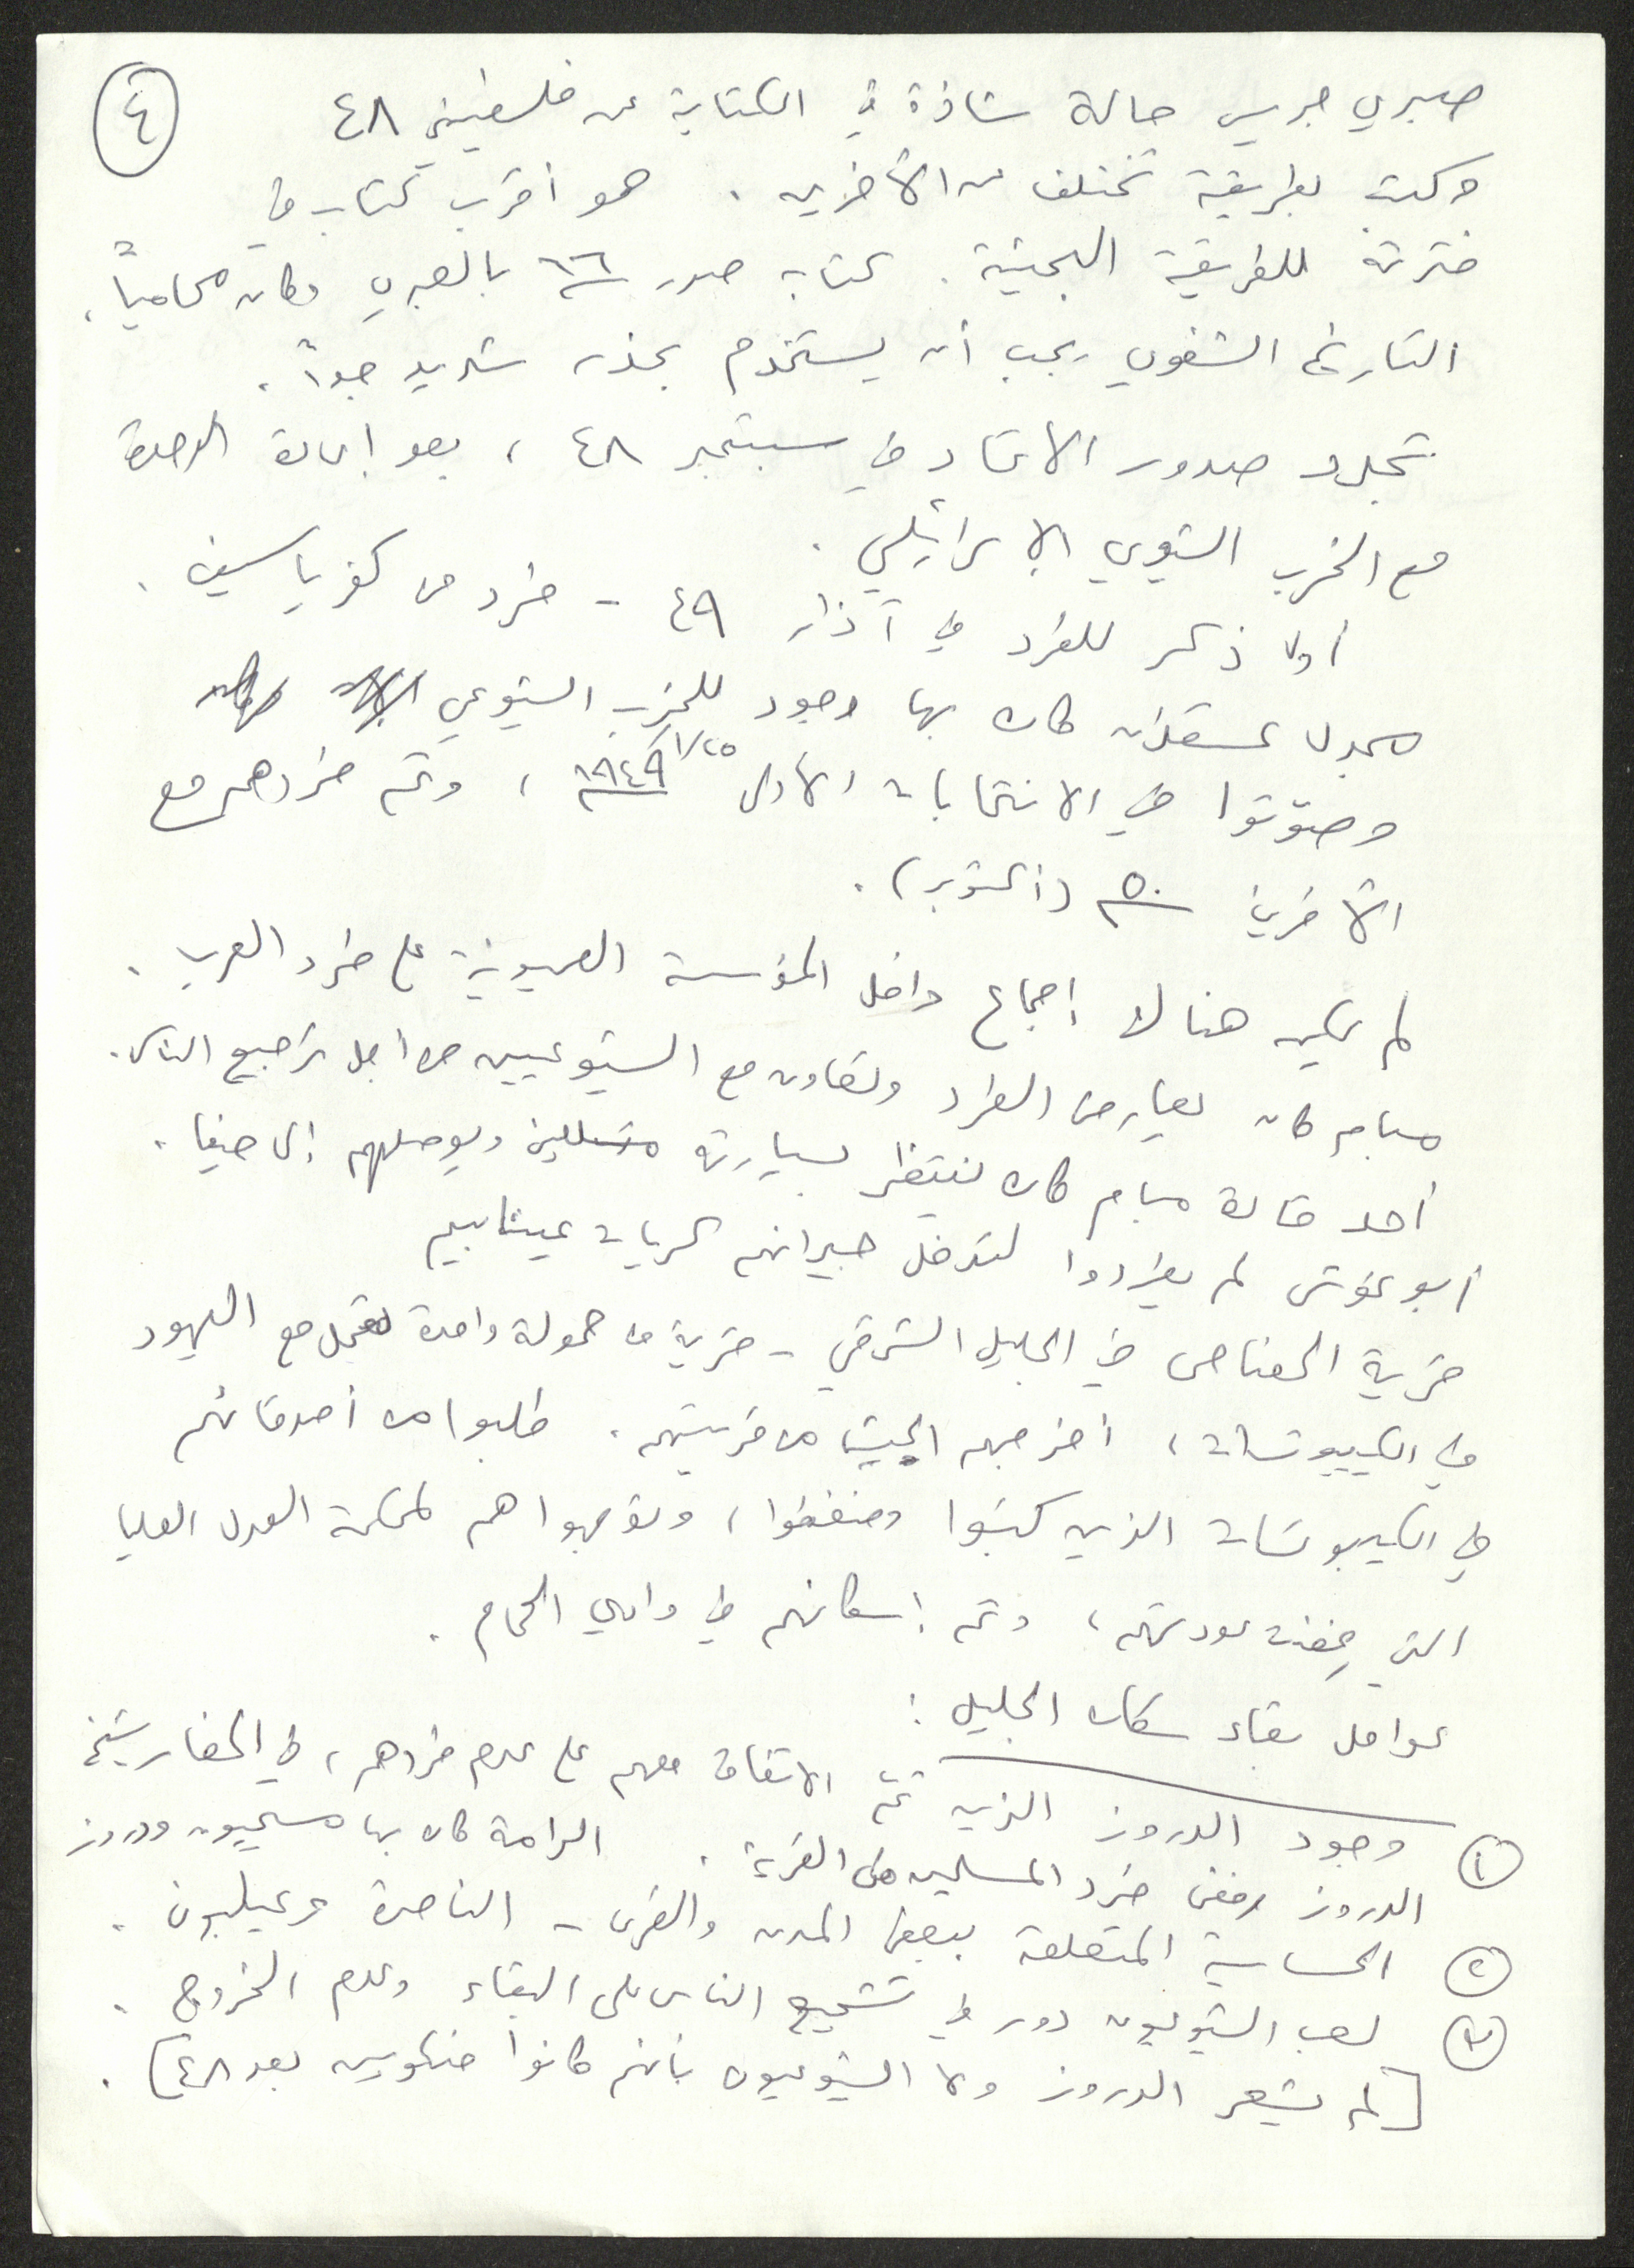 ٤
صبري جريس حالة شاذة في الكتابة عن فلسطينيي ٤٨
وكتب بطريقة تختلف عن الآخرين . هو أقرب كتاب في
فترته للطريقة البحثية . كتابه صدر ٦٦ بالعبري وكان محامياً .
التاريخ الشفوي يجب أن يستخدم بحذر شديد جداً .
تجدد صدور الاتحاد في سبتمبر ٤٨ ، بعد إعادة الوحدة
مع الحزب الشيوعي الإسرائيلي .
أول ذكر للطرد في آذار ٤٩ - طرد من كفر ياسيف .
مجدل عسقلان كان بها وجود للحزب الشيوعي
وصوتوا في الانتخابات الأولى ١/٢٥ ١٩٤٩ ، وتم طردهم مع
الآخرين ٥٠ (أكتوبر) .
لم يكن هناك إجماع داخل المؤسسة الصهيونية على طرد العرب .
مبام كان يعارض الطرد وتعاون مع الشيوعيين من أجل ترجيع الناس .
أحد قادة مبام كان ينتظر بسيارته متسللين ويوصلهم إلى حيفا .
أبو غوش لم يطردوا لتدخل جيرانهم كريات عينابيم
قرية الخصاص في الجليل الشرقي - قرية من حمولة واحدة تعمل مع اليهود
في الكيبوتسات ، أخرجهم الجيش من قريتهم . طلبوا من أصدقائهم
في الكيبوتسات الذين كتبوا وضغطوا ، وتوجهوا هم لمحكمة العدل العليا
التي رفضت عودتهم ، وتم إسكانهم في وادي الحمام .
عوامل بقاء سكان الجليل :
١ وجود الدروز الذين تم الاتفاق معهم على عدم طردهم ، في المغار شيخ
الدروز رفض طرد المسلمين من القرية . الرامة كان بها مسيحيون ودروز
٢ الحساسية المتعلقة ببعض المدن والقرى - الناصرة وعيلبون .
٣ لعب الشيوعيون دور في تشجيع الناس على البقاء وعدم الخروج .
[لم يشعر الدروز ولا الشيوعيون بأنهم كانوا منكوبين بعد ٤٨] .